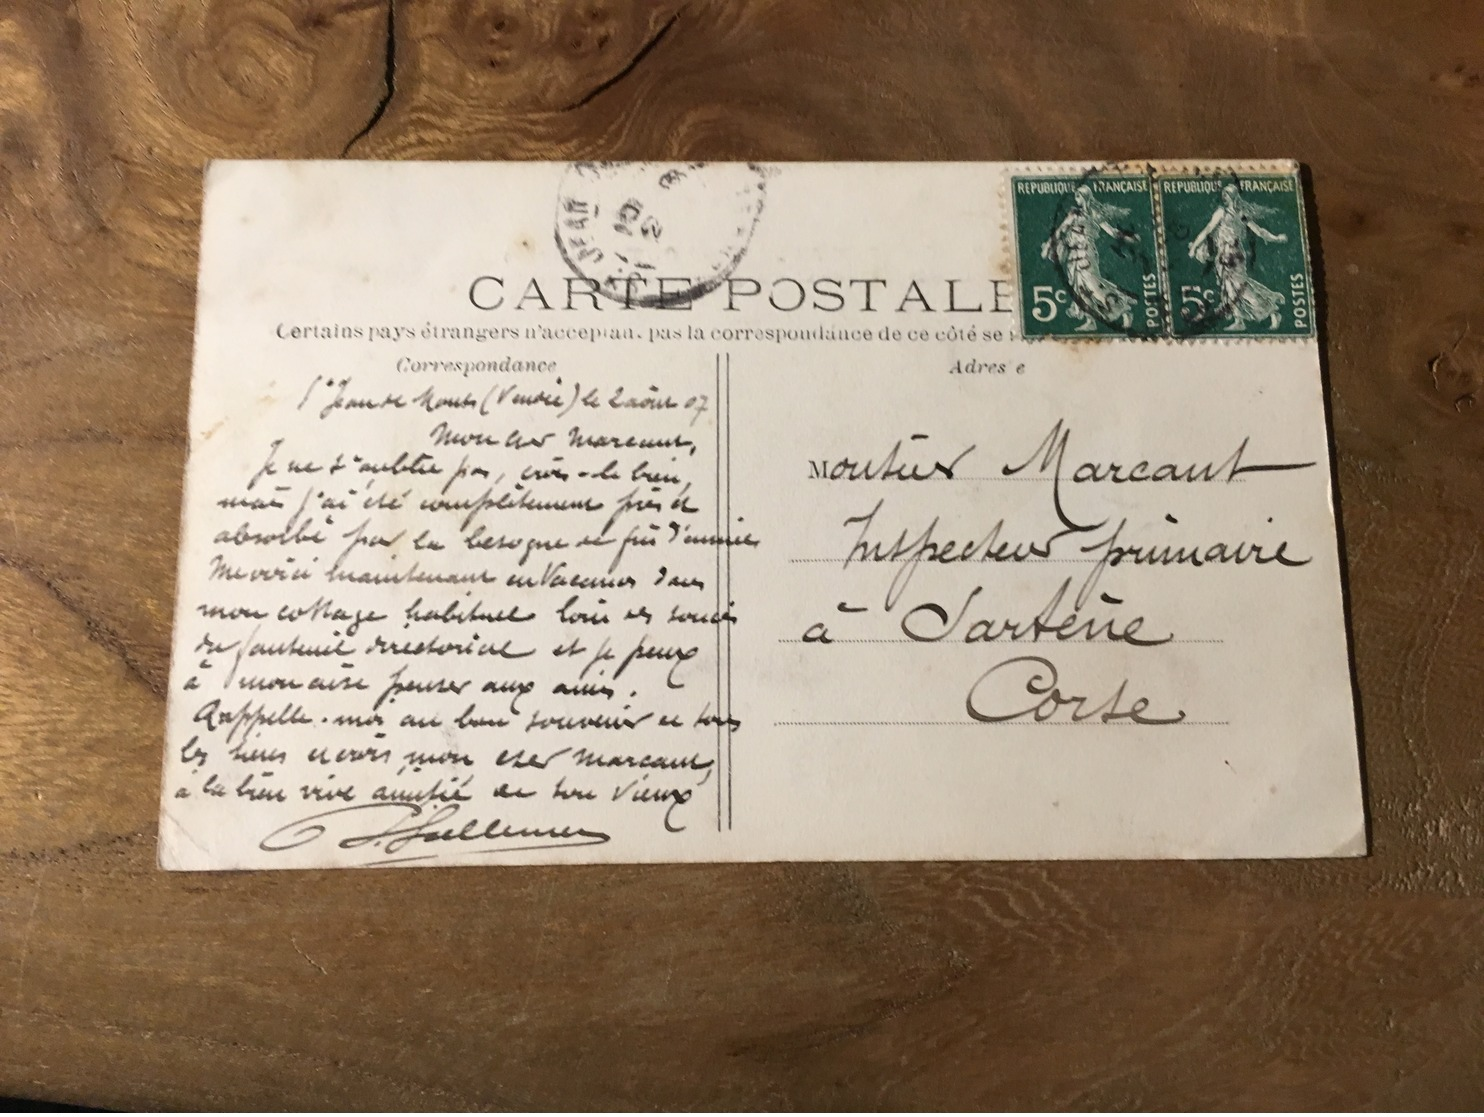 REPUBLIQUE FRANÇAISE
5c POSTES
REPUBLIQUE FRANÇAISE
5c POSTES
JEAN
CARTE POSTALE
Certains pays étrangers n'acceptant pas la correspondance de ce côté se
Correspondance
St Jean de Monts (Vendée) le 2 août 07
Mon cher Marcant,
Je ne t'oublie pas, crois-le bien,
mais j'ai été complètement pris et
absorbé par la besogne de fin d'année
Me voici maintenant en vacances dans
mon cottage habituel loin des soucis
du fauteuil directorial et je peux
à mon aise penser aux amis.
Rappelle-moi au bon souvenir de tous
les tiens et crois mon cher Marcant,
à la bien vive amitié de ton vieux
Adresse
Monsieur Marcant
Inspecteur primaire
à Sartène
Corse